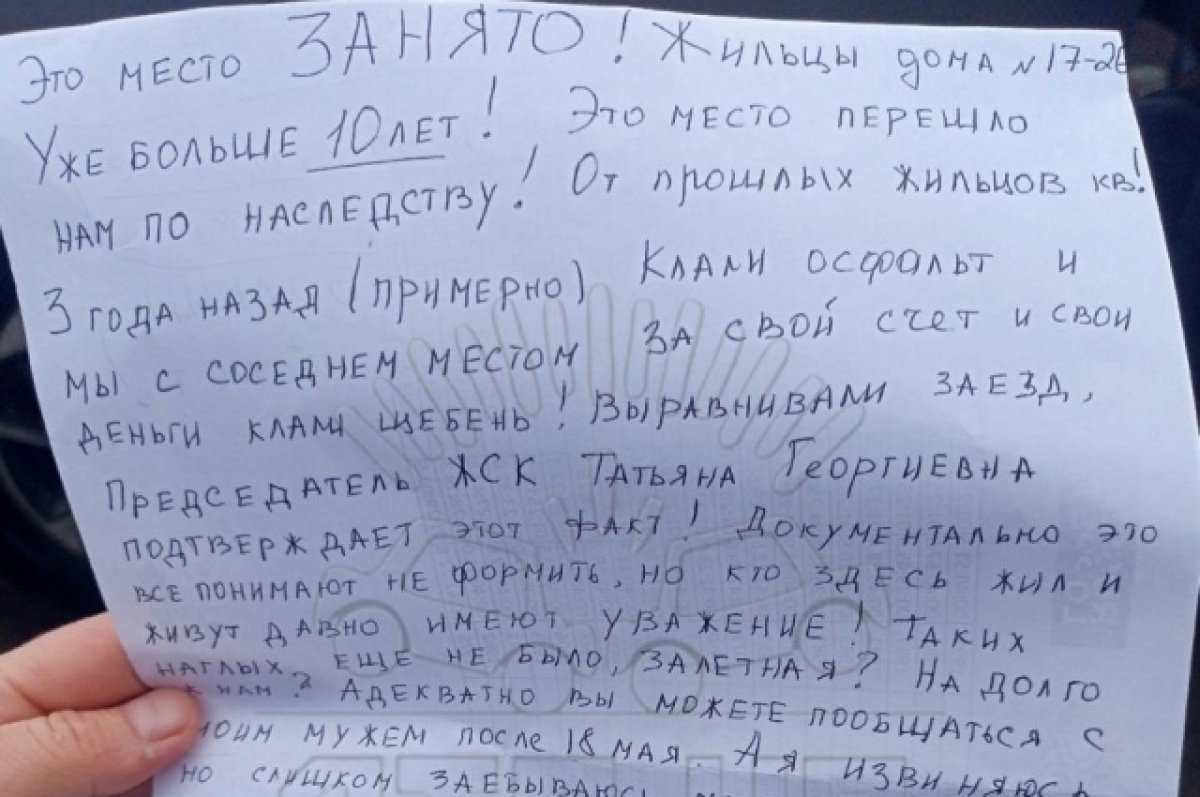 Это место ЗАНЯТО! Жильцы дома N 17-26
Уже больше 10 лет! Это место перешло
нам по наследству! От прошлых жильцов кв!
3 года назад (примерно) Клали осфальт и
мы с соседнем местом за свой счет и свои
деньги клали щебень! Выравнивали заезд,
Председатель ЖСК Татьяна Георгиевна
подтверждает этот факт! Документально это
все понимают не формить, но кто здесь жил и
живут давно имеют уважение! Таких
наглых. еще не было, залетная? На долго
к нам? Адекватно вы можете пообщаться с
моим мужем после 18 мая. А я извиняюсь
но слишком заебываюсь